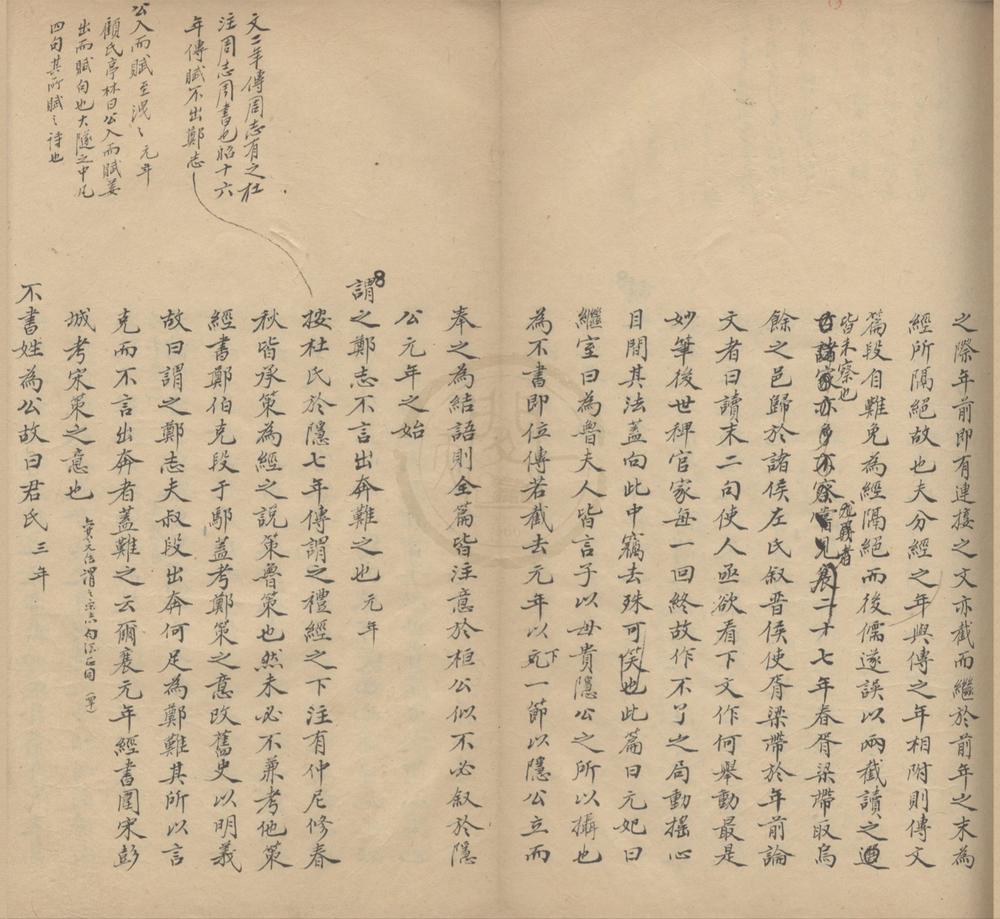 之際年前即有連接之文亦截而繼於前年之末為
經所隔絕故也夫分經之年與傳之年相附則傳文
篇段自難免為經隔絕而後儒遂誤以兩截讀之
皆未察也
襄二十七年春胥梁帶取烏
餘之邑歸於諸侯左氏敘晉侯使胥梁帶於年前論
文者曰讀末二句使人亟欲看下文作何舉動最是
妙筆後世稗官家每一回終故作不了之局動搖心
目間其法蓋向此中竊去殊可笑也此篇曰元妃曰
繼室曰為魯夫人皆言子以母貴隱公之所以攝也
為不書即位傳若截去元年以下一節以隱公立而
奉之為結語則全篇皆注意於桓公似不必敘於隱
公元年之始
謂之鄭志不言出奔難之也 元年
按杜氏於隱七年傳謂之禮經之下注有仲尼修春
秋皆承策為經之說策魯策也然未必不兼考他策
經書鄭伯克段于鄢蓋考鄭策之意改舊史以明義
故曰謂之鄭志夫叔段出奔何足為鄭難其所以言
克而不言出奔者蓋難之云爾襄元年經書圍宋彭
城考宋策之意也
不書姓為公故曰君氏 三年
文二年傳周志有之杜
注周志周書也昭十六
年傳賦不出鄭志
公入而賦至洩洩 元年
顧氏亭林曰公入而賦姜
出而賦句也大隧之中凡
四句其所賦之詩也